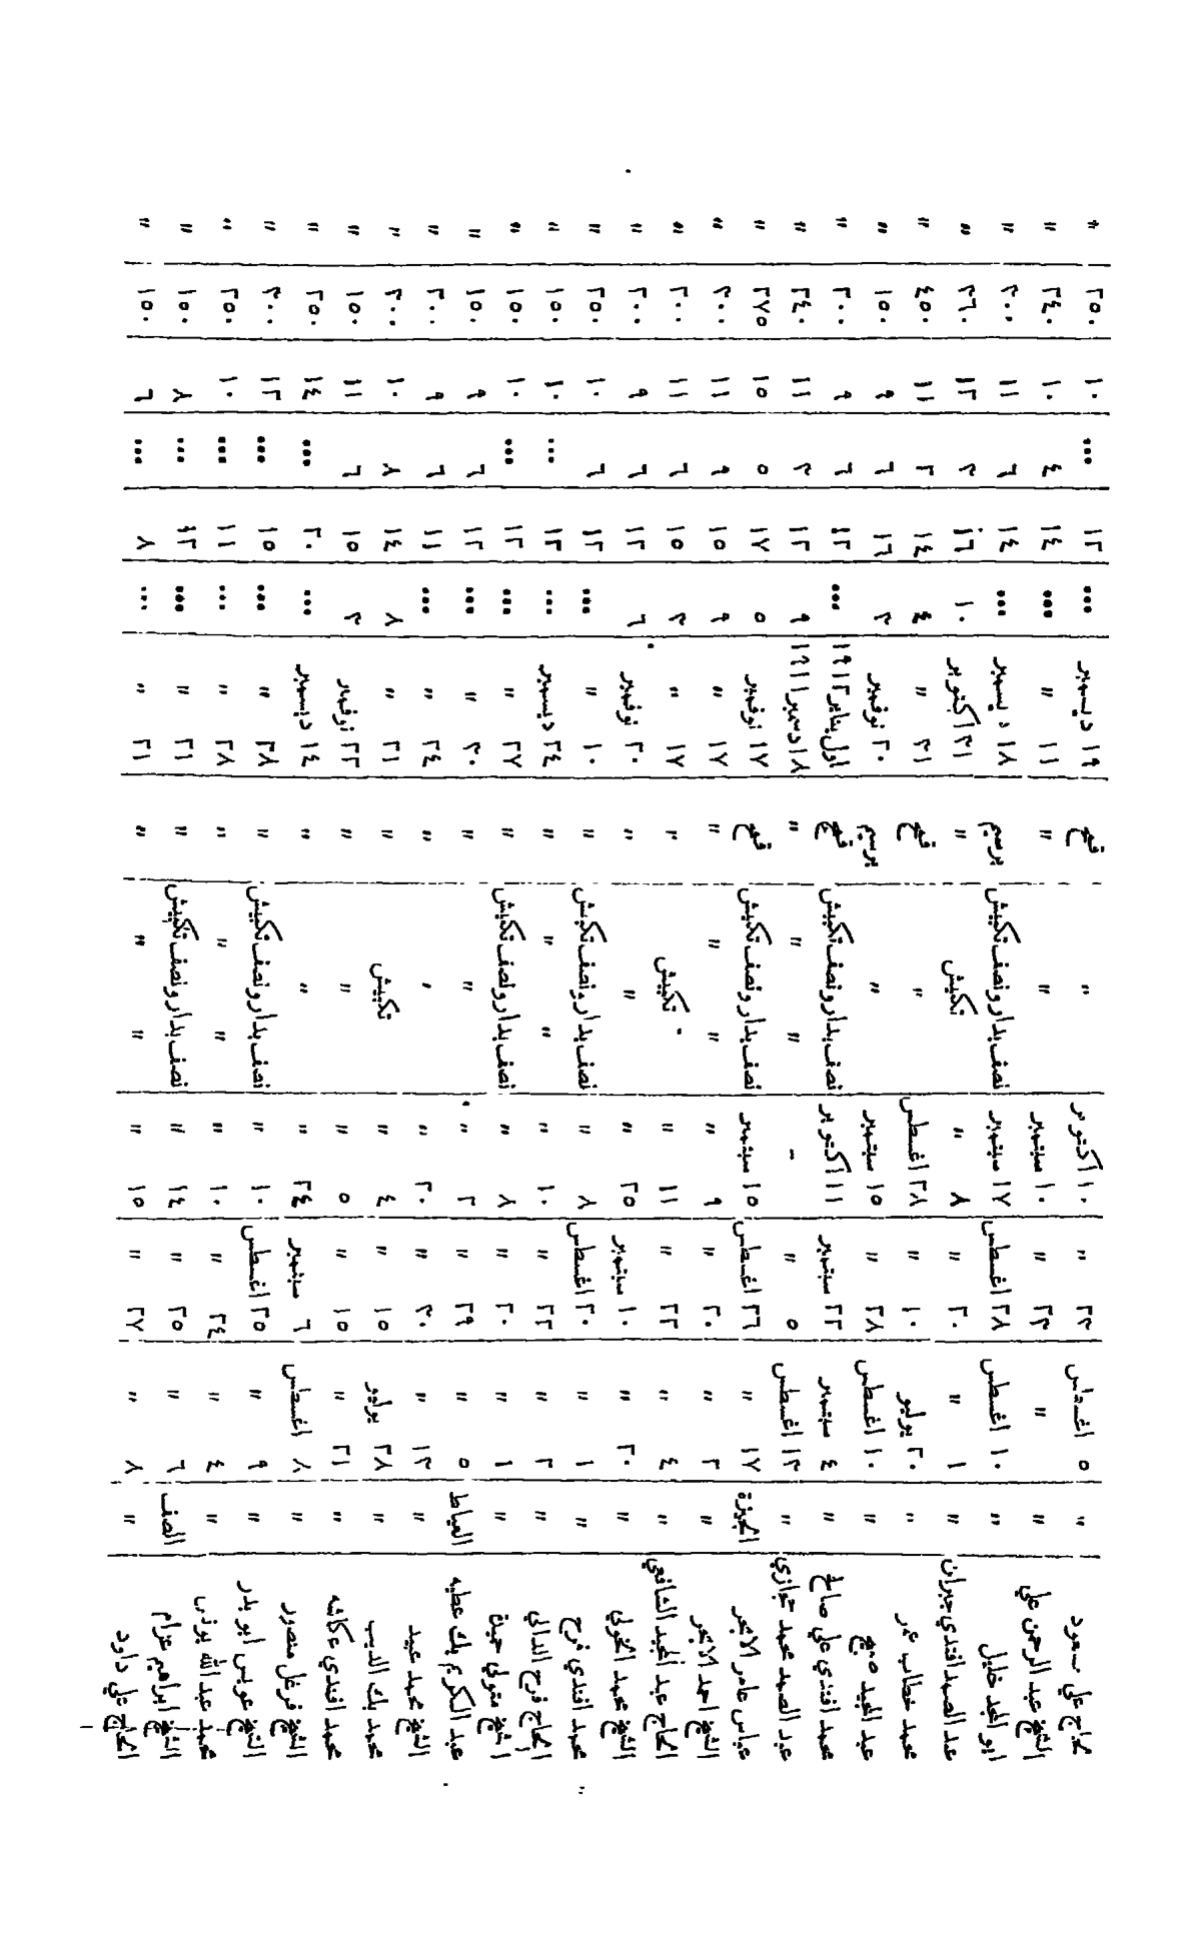 علي سعود " ٥ اغسطس ٢٣ " ١٠ اكتوبر " قمح ١٩ ديسمبر ... ١٢ ... ١٠ ٢٥٠ "
الشيخ عبد الرحمن علي " " ٢٣ " ١٠ سبتمبر " " ١١ " ... ١٤ ٤ ١٠ ٢٤٠ "
ابو المجد خليل " ١٠ اغسطس ٢٨ اغسطس ١٧ سبتمبر نصف بدار ونصف تكبيش برسيم ١٨ ديسمبر ... ١٤ ٦ ١١ ٣٠٠ "
عبد الصمد افندي جبران " ١ " ٢٠ " ٨ " تكبيش " ٣١ اكتوبر ١٠ ١٦ ٣ ١٣ ٣٦٠ "
محمد خطاب عمر " ٢٠ يوليو ١٠ " ٢٨ اغسطس " قمح ٢١ " ٤ ١٤ ٢ ١١ ٤٥٠ "
عبد المجيد صبيح " ١٠ اغسطس ٢٨ " ١٥ سبتمبر " برسيم ٢٠ نوفمبر ٣ ١٦ ٦ ٩ ١٥٠ "
محمد افندي علي صالح " ٤ سبتمبر ٢٢ سبتمبر ١١ اكتوبر نصف بدار ونصف تكبيش قمح اول يناير ١٩١٢ ... ١٢ ٦ ٩ ٢٠٠ "
عبد الصمد محمد حجازي " ١٣ اغسطس ٥ " - " " " ١٨ دسمبر ١٩١١ ٩ ١٢ ٣ ١١ ٢٤٠ "
عباس عامر الابحر الجيزة ١٧ " ٢٦ اغسطس ١٥ سبتمبر نصف بدار ونصف تكبيش قمح ١٧ نوفمبر ٥ ١٧ ٥ ١٥ ٢٧٥ "
الشيخ احمد الابحر " ٢ " ٢٠ " ٩ " " " " ١٧ " ٩ ١٥ ٩ ١١ ٣٠٠ "
الحاج عبد المجيد الشافعي " ٤ " ٢٣ " ١١ " تكبيش " ١٧ " ٣ ١٥ ٦ ١١ ٢٠٠ "
الشيخ محمد الخولي " ٢٠ " ١٠ سبتمبر ٢٥ " " " ٢٠ نوفمبر ٦ ١٢ ٦ ٩ ٢٠٠ "
محمد افندي فرج " ١ " ٢٠ اغسطس ٨ " نصف بدار ونصف تكبيش " ١٠ " ... ١٢ ٦ ١٠ ٢٥٠ "
الحاج فرج الدالي " ٢ " ٢٢ " ١٠ " " " " ٢٤ ديسمبر ... ١٣ ... ١٠ ١٥٠ "
الشيخ متولي حميدة " ١ " ٢٠ " ٨ " نصف بدار ونصف تكبيش " ٢٧ " ... ١٢ ... ١٠ ١٥٠ "
عبد الكريم بك عطيه العياط ٥ " ٢٩ " ٢ " " " ٣٠ " ... ١٢ ٦ ٩ ١٥٠ "
الشيخ محمد عبيد " ١٣ " ٣٠ " ٢٠ " " " ٢٤ " ... ١١ ٦ ٩ ٢٠٠ "
محمد بك الديب " ٢٨ يوليو ١٥ " ٤ " تكبيش " ٢١ " ٨ ١٤ ٨ ١٠ ٣٠٠ "
محمد افندي عكاشه " ٢١ " ١٥ " ٥ " " " ٢٢ نوفمبر ٣ ١٥ ٦ ١١ ١٥٠ "
الشيخ فرغل منصور " ٨ اغسطس ٦ سبتمبر ٢٤ " " " ١٤ ديسمبر ... ٢٠ ... ١٤ ٢٥٠ "
الشيخ عويس ابو بدر " ٩ " ٢٥ اغسطس ١٠ " نصف بدار ونصف تكبيش " ٢٨ " ... ١٥ ... ١٣ ٣٠٠ "
محمد عبد الله يونس " ٤ " ٢٤ " ١٠ " " " " ٢٨ " ... ١١ ... ١٠ ٢٥٠ "
الشيخ ابراهيم عزام الصف ٦ " ٢٥ " ١٤ " نصف بدار ونصف تكبيش " ٢١ " ... ١٣ ... ٨ ١٥٠ "
الحاج علي داود " ٨ " ٢٧ " ١٥ " " " " ٢١ " ... ٨ ... ٦ ١٥٠ "